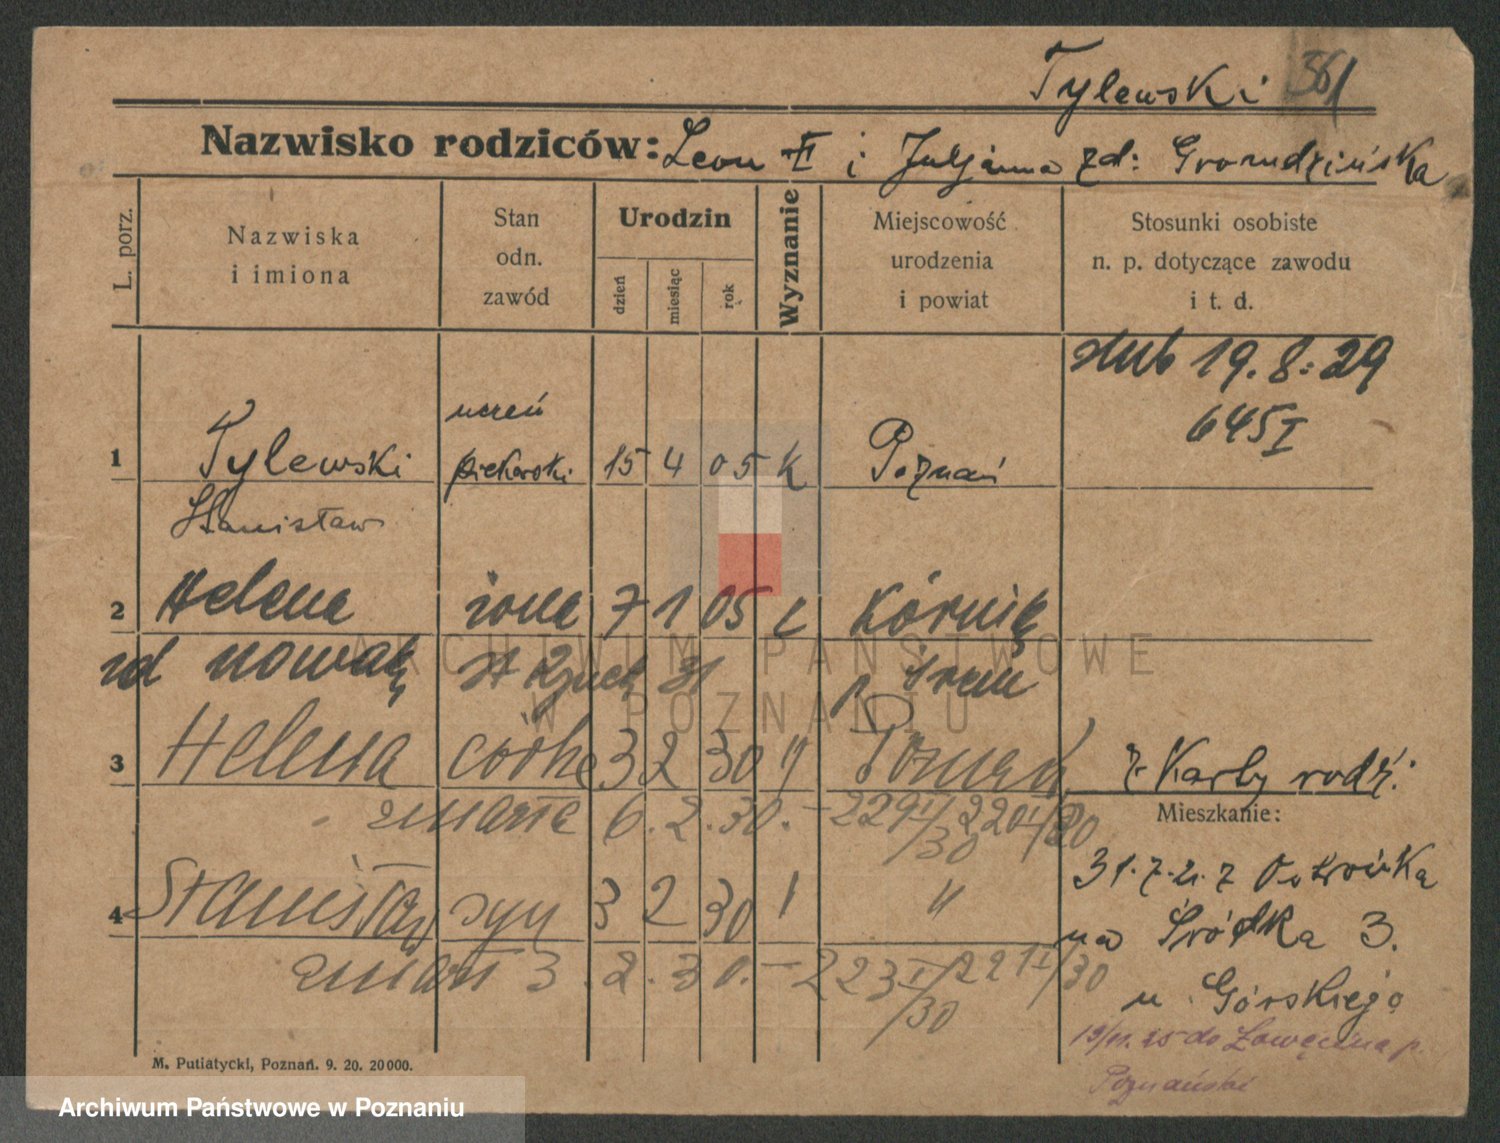 Tylewski 361
Nazwisko rodziców: Leon II i Juljanna zd: Gromdzińska
L. porz.
Nazwiska i imiona
Stan odn. zawód
Urodzin
dzień miesiąc rok
Wyznanie
Miejscowość urodzenia i powiat
Stosunki osobiste n. p. dotyczące zawodu i t. d.
ślub 19.8.29
645 I
uczeń
1 Tylewski piekarski 15 4 05 k Poznań
Stanisław
2 Helena żona 7 1 05 k Kórnik
zd Nowak 31 p Śrem
3 Helena córka 32 30 " Poznań z Karty rodz.
zmarła 6.2.30. - 229 I/30 220 I/30
Mieszkanie:
31.7.21. z Ostrówka
4 Stanisław syn 3 2 30 " "
na Śródka 3.
zmarł 3.2.30. - 223 I/30 221 I/30
u Górskiego
19/11.25 do Łowęcina p.
Poznański
M. Putiatycki, Poznań. 9. 20. 20000.
ARCHIWUM PAŃSTWOWE
W POZNANIU
Archiwum Państwowe w Poznaniu